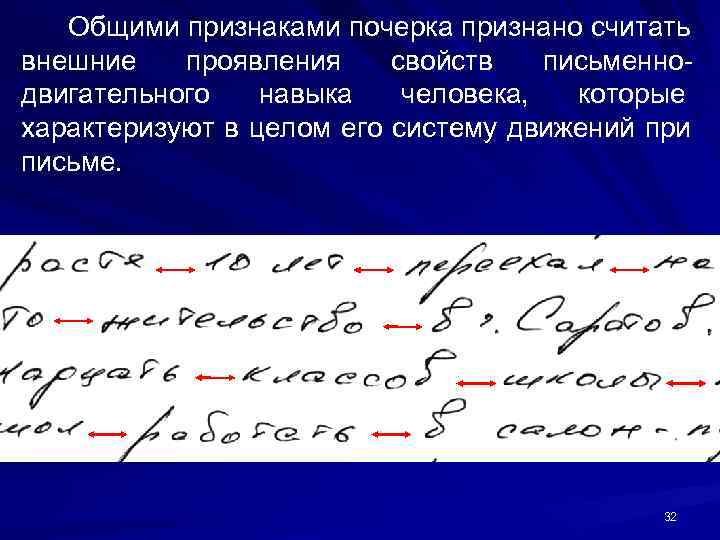 Общими признаками почерка признано считать
внешние проявления свойств письменно-
двигательного навыка человека, которые
характеризуют в целом его систему движений при
письме.
растя 10 лет переехал на
то жительство в г. Саратов.
надцать классов школы
мол работать в салон-п
32